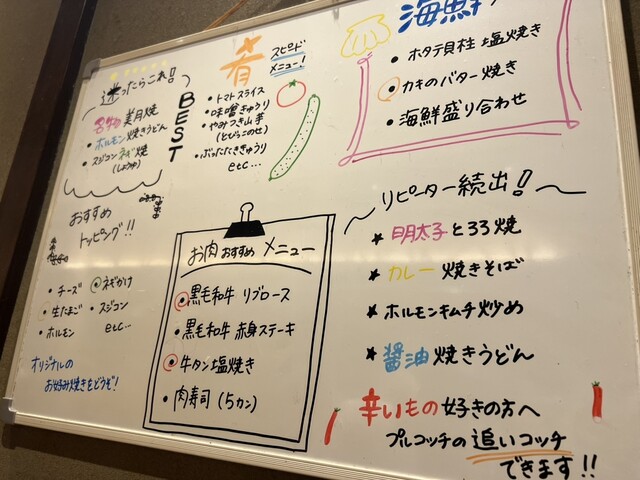 迷ったらこれ!
BEST
名物 美月焼
・ホルモン焼きうどん
・スジコンネギ焼
(しょうゆ)
肴
スピードメニュー!
・トマトスライス
・味噌きゅうり
・やみつき山芋
(とびっこのせ)
・ぶったたききゅうり
etc...
海鮮
・ホタテ貝柱 塩焼き
・カキのバター焼き
・海鮮盛り合わせ
おすすめ
トッピング!!
・チーズ
・ネギかけ
・生たまご
・スジコン
・ホルモン
etc...
オリジナルの
お好み焼きをどうぞ!
お肉おすすめメニュー
・黒毛和牛 リブロース
・黒毛和牛 赤身ステーキ
・牛タン塩焼き
・肉寿司(5カン)
リピーター続出!
★ 明太子とろろ焼
★ カレー焼きそば
★ ホルモンキムチ炒め
★ 醤油焼きうどん
辛いもの好きの方へ
プルコッチの追いコッチ
できます!!